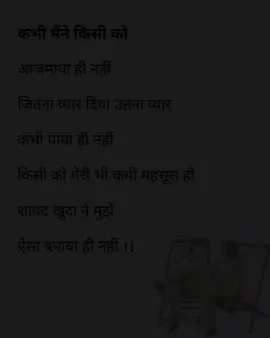 कभी मैंने किसी को
आजमाया ही नहीं
जितना प्यार दिया उतना प्यार
कभी पाया ही नहीं
किसी को मेरी भी कमी महसूस हो
शायद खुदा ने मुझे
ऐसा बनाया ही नहीं ।।